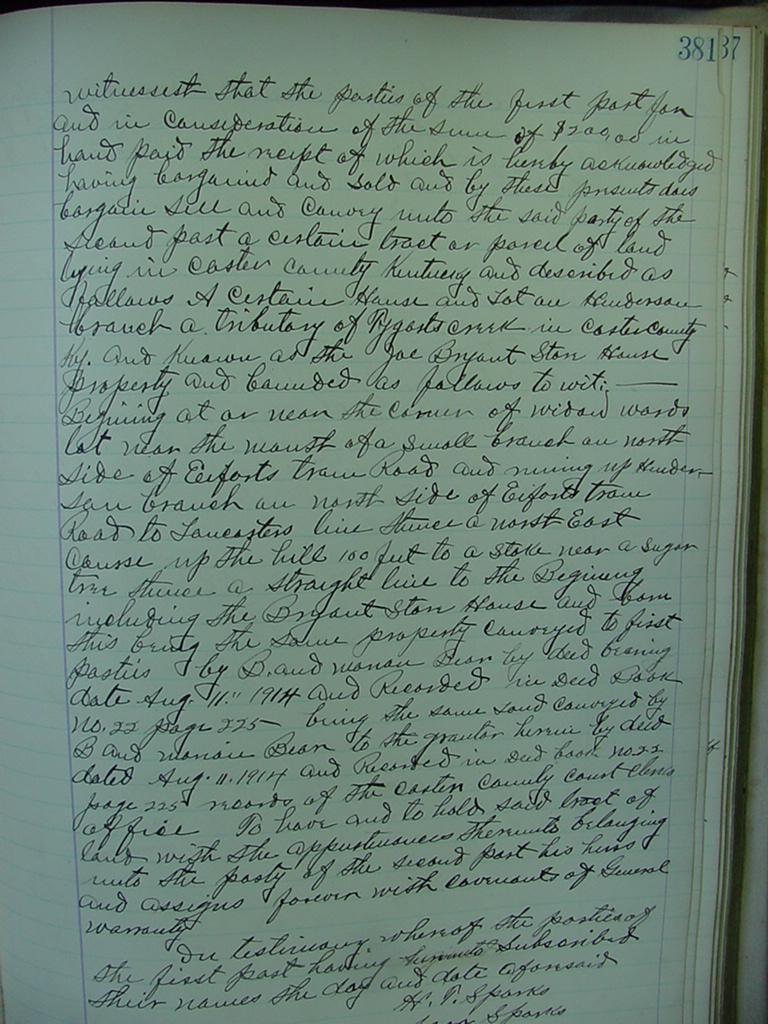 38137
witnesseth that the parties of the first part for
and in consideration of the sum of $200.00 in
hand paid the receipt of which is hereby acknowledged
having bargained and sold and by these presents does
bargain sell and convey unto the said party of the
second part a certain tract or parcel of land
lying in Carter County Kentucky and described as
follows A certain House and Lot on Henderson
branch a tributary of Tygarts creek in Carter County
Ky. and known as the Joe Bryant Store House
property and bounded as follows to wit:
Begining at or near the corner of widow wards
lot near the mouth of a small branch on north
side of Eiforts tram Road and runing up Hender-
son branch on north side of Eiforts tram
Road to Lancasters line thence a north East
course up the hill 100 feet to a stake near a sugar
tree thence a straight line to the Begining
including the Bryant Store House and barn
this being the same property conveyed to first
parties by B. and Bear by deed bearing
date Aug. 11." 1914 and Recorded in Deed Book
No. 22 page 225 being the same land conveyed by
B and Bear to the grantor herein by deed
dated Aug. 11. 1914 and Recorded in Deed book No. 22
page 225 records of the Carter County Court Clerks
office To have and to hold said tract of
land with the appurtenances thereunto belonging
unto the party of the second part his heirs
and assigns forever with covenants of General
warranty
In testimony whereof the parties of
the first part having hereunto Subscribed
their names the day and date aforesaid
H. T. Sparks
Sparks